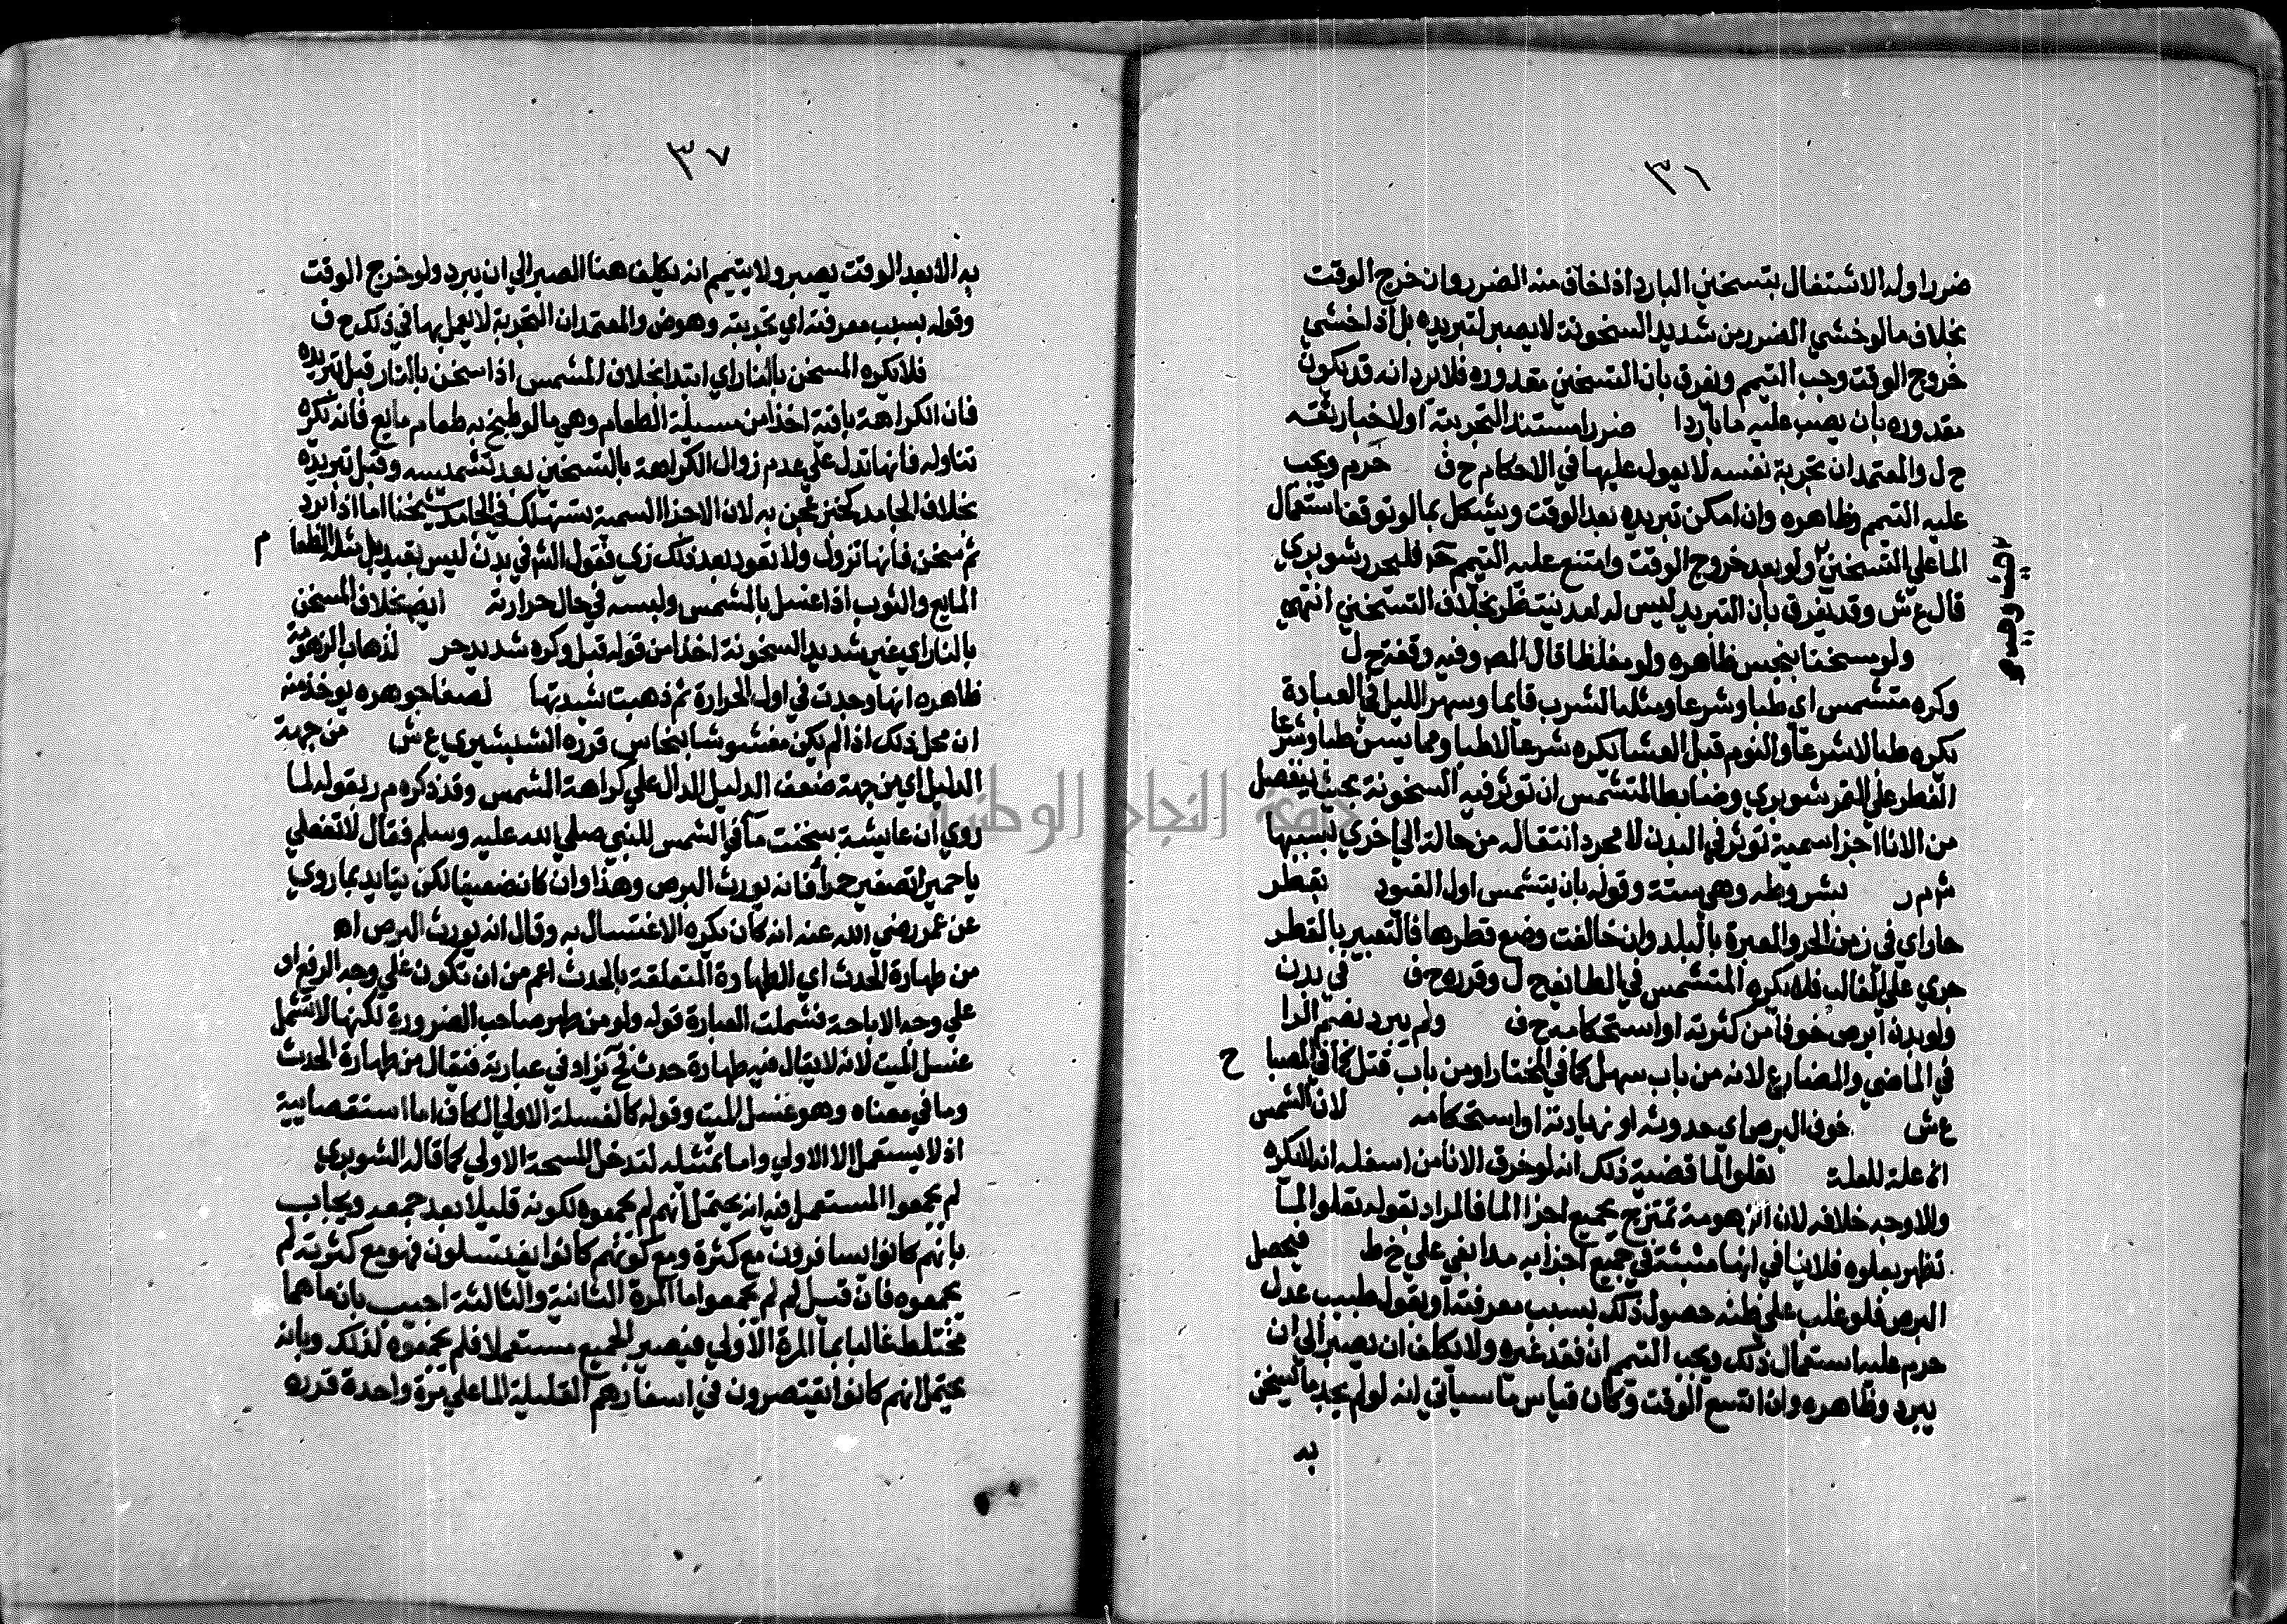 ٣٦
ضررا وله الاشتغال بتسخين البارد اذا خاف منه الضرر وان خرج الوقت
بخلاف ما لو خشي الضرر من شديد السخونة لا يصبر لتبريده بل اذا خشي
خروج الوقت وجب التيمم ويفرق بان التسخين مقدوره فلا يرد انه قد يكون
مقدوره بان يصب عليه ما باردا ضررا مستند التجربته او لاخبار ثقه
ح ل والمعتمد ان تجربة نفسه لا يعول عليها في الاحكام ح ف حرم ويجب
عليه التيمم وظاهره وان امكن تبريده بعد الوقت ويشكل بما لو توقف استعمال
الما علي التسخين ولو بعد خروج الوقت وامتنع عليه التيمم حج فليحرر شوبري
قال ع ش وقد يفرق بان التبريد ليس له امد ينتظر بخلاف التسخين انتهي
ولو مسخنا بنجس ظاهره ولو مغلظا قال المص وفيه وقفة ح ل
وكره متشمس اي طبا وشرعا ومثله الشرب قايما وسهر الليل في العبادة
يكره طبا لا شرعا والنوم قبل العشا يكره شرعا لا طبا ومما يسن طبا وشرعا
الفطر علي التمر شوبري وضابط المتشمس ان توثر فيه السخونة بحيث ينفصل
من الانا اجزا سمية توثر في البدن لا مجرد انتقاله من حالة الي اخري بسببها
ش م ر بشروطه وهي ستة وقوله بان يتشمس اول القيود بقطر
حار اي في زمن الحر والعبرة بالبلد وان خالفت وضع قطرها فالتعبير بالقطر
جري علي الغالب فلا يكره المتشمس في الطائف ح ل وقرره ح ف في بدن
ولو بدن ابرص خوفا من كثرته او استحكامه ح ف ولم يبرد بضم الرا
في الماضي والمضارع لانه من باب سهل كما في المختار او من باب قتل كما في المصباح
ع ش خوف البرص اي حدوثه او زيادته او استحكامه لان الشمس
الخ علة للعلة تعلوا الما قضية ذلك انه لو خرق الانا من اسفله انه لا يكره
والاوجه خلافه لان الزهومة تمتزج بجميع اجزا الما فالمراد بقوله تعلوا الما
تظهر بعلوه فلا ينافي انها منبثة في جميع اجزايه مدابغي علي خ ط فيحصل
البرص فلو غلب علي ظنه حصول ذلك بسبب معرفته او بقول طبيب عدل
حرم عليه استعمال ذلك ويجب التيمم ان فقد غيره ولا يكلف ان يصبر الي ان
يبرد وظاهره وان اتسع الوقت وكان قياس ما سياتي انه لو لم يجد ما يسخن
به
٣٧
به الا بعد الوقت يصبر ولا يتيمم انه يكلف هنا الصبر الي ان يبرد ولو خرج الوقت
وقوله بسبب معرفته اي تجربته وهو ض والمعتمد ان التجربة لا يعمل بها في ذلك ح ف
فلا يكره المسخن بالنار اي ابتدا بخلاف المشمس اذا سخن بالنار قبل تبريده
فان الكراهة باقية اخذا من مسيلة الطعام وهي ما لو طبخ به طعام مايع فانه يكره
تناوله فانها تدل علي عدم زوال الكراهة بالتسخين بعد تشميسه وقبل تبريده
بخلاف الجامد كخبز عجن به لان الاجزا السمية تستهلك في الجامد شيخنا اما اذا برد
ثم سخن فانها تزول ولا تعود بعد ذلك زي فقول الش في بدن ليس بقيد بل مثله الطعام
المايع والثوب اذا غسل بالمشمس ولبسه في حال حرارته ايض بخلاف المسخن
بالنار اي غير شديد السخونة اخذا من قوله قبل وكره شديد حر لذهاب الزهومة
ظاهره انها وجدت في اول الحرارة ثم ذهبت بشدتها لصفا جوهره يوخذ منه
ان محل ذلك اذا لم يكن مغشوشا بنحاس قرره الشبشيري ع ش من جهة
الدليل اي من جهة ضعف الدليل الدال علي كراهة الشمس وقد ذكره م ر بقوله لما
روي ان عايشة سخنت مآ في الشمس للنبي صلي الله عليه وسلم فقال لا تفعلي
يا حميرا تصغير حمرآ فانه يورث البرص وهذا وان كان ضعيفا لكن يتايد بما روي
عن عمر رضي الله عنه انه كان يكره الاغتسال به وقال انه يورث البرص اه
من طهارة الحدث اي الطهارة المتعلقة بالحدث اعم من ان تكون علي وجه الرفع او
علي وجه الاباحة فشملت العبارة قوله ولو من طهر صاحب الضرورة لكنها لا تشمل
غسل الميت لانه لا يقال فيه طهارة حدث فح يزاد في عبارته فيقال من طهارة الحدث
وما في معناه وهو غسل الميت وقوله كالغسلة الاولي الكاف اما استقصاييه
اذ لا يستعمل الا الاولي واما تمثيليه لتدخل المسحة الاولي كما قاله الشوبري
لم يجمعوا المستعمل فيه انه يحتمل انهم لم يجمعوه لكونه قليلا بعد جمعه ويجاب
بانهم كانوا يسافرون مع كثرة ومع كونهم كانوا يغتسلون فهو مع كثرته لم
يجمعوه فان قيل لم لم يجمعوا ما المرة الثانية والثالثة اجيب بان ماهما
يختلط غالبا بما المرة الاولي فيصير الجميع مستعملا فلم يجمعوه لذلك وبانه
يحتمل انهم كانوا يقتصرون في اسفارهم القليلة الما علي مرة واحدة قرره